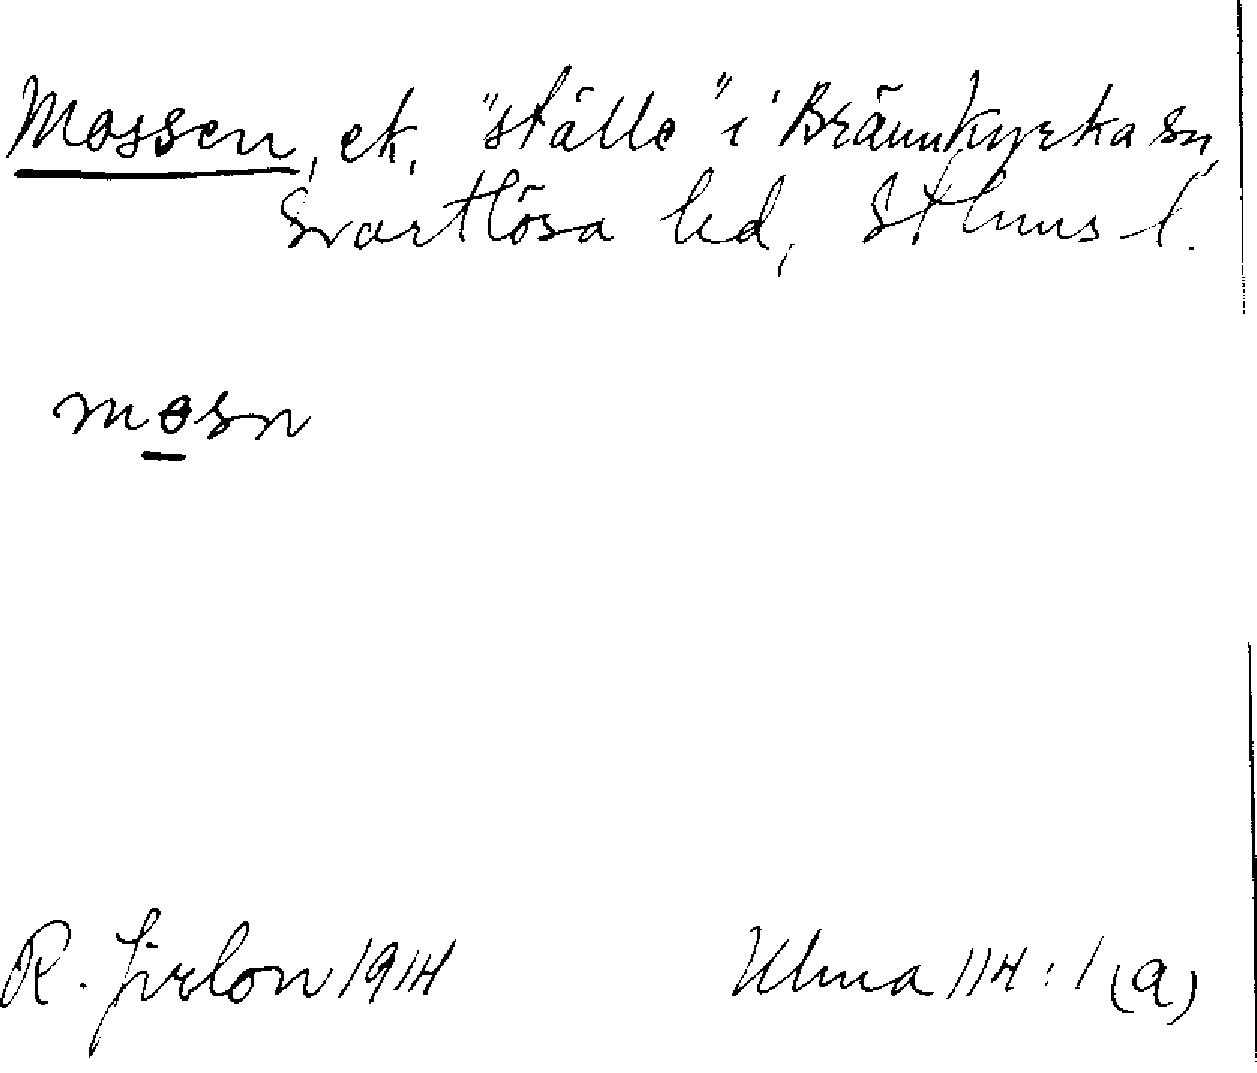 Mossen, ek. "ställe" i Brännkyrka sn,
Svartlösa hd, Sthms l.
mɵsn
R. Jirlow 1914 Ulma 114:1 (a)